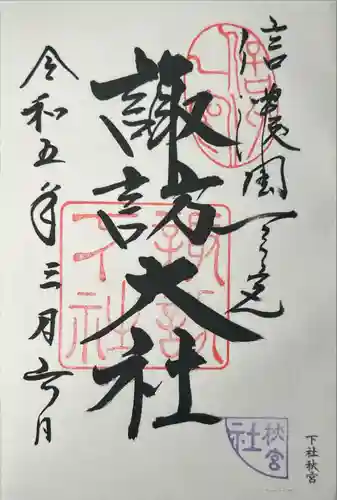 信濃國一之宮
諏訪大社
令和五年三月六日
諏訪
下社
秋宮
社
下社秋宮